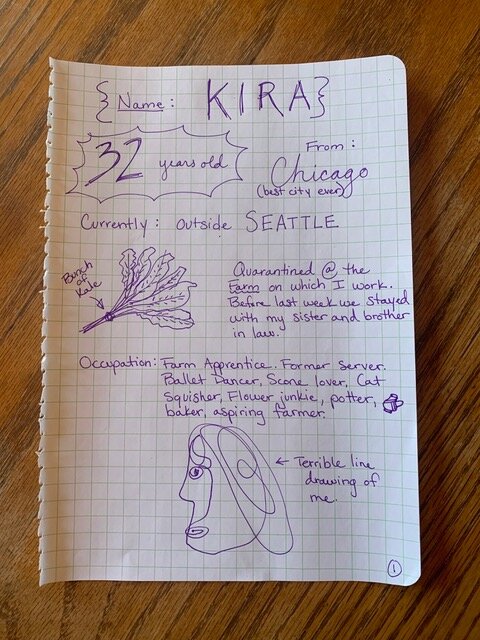 { Name: KIRA}
32 years old
From:
Chicago
(best city ever)
Currently: outside SEATTLE
Bunch
of
Kale
Quarantined @ the
farm on which I work.
Before last week we stayed
with my sister and brother
in law.
Occupation: Farm Apprentice. Former server.
Ballet Dancer, Scone lover, Cat
Squisher, Flower junkie, potter,
baker, aspiring farmer.
← Terrible line
drawing of
me.
1